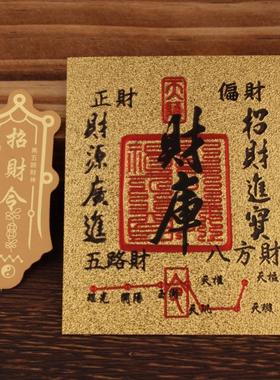 正財
偏財
招財進寶
財庫
財源廣進
五路財
八方財
天權
天樞
開陽
玉衡
天璇
招財令